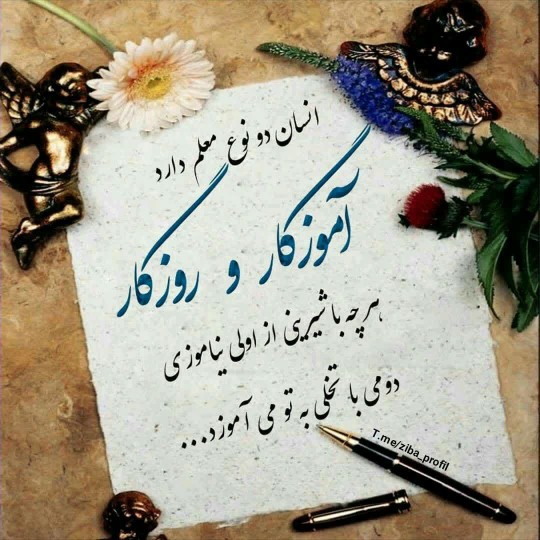 انسان دو نوع معلم دارد
آموزگار و روزگار
هر چه با شیرینی از اولی نیاموزی
دومی با تلخی به تو می آموزد...
T.me/ziba_profil